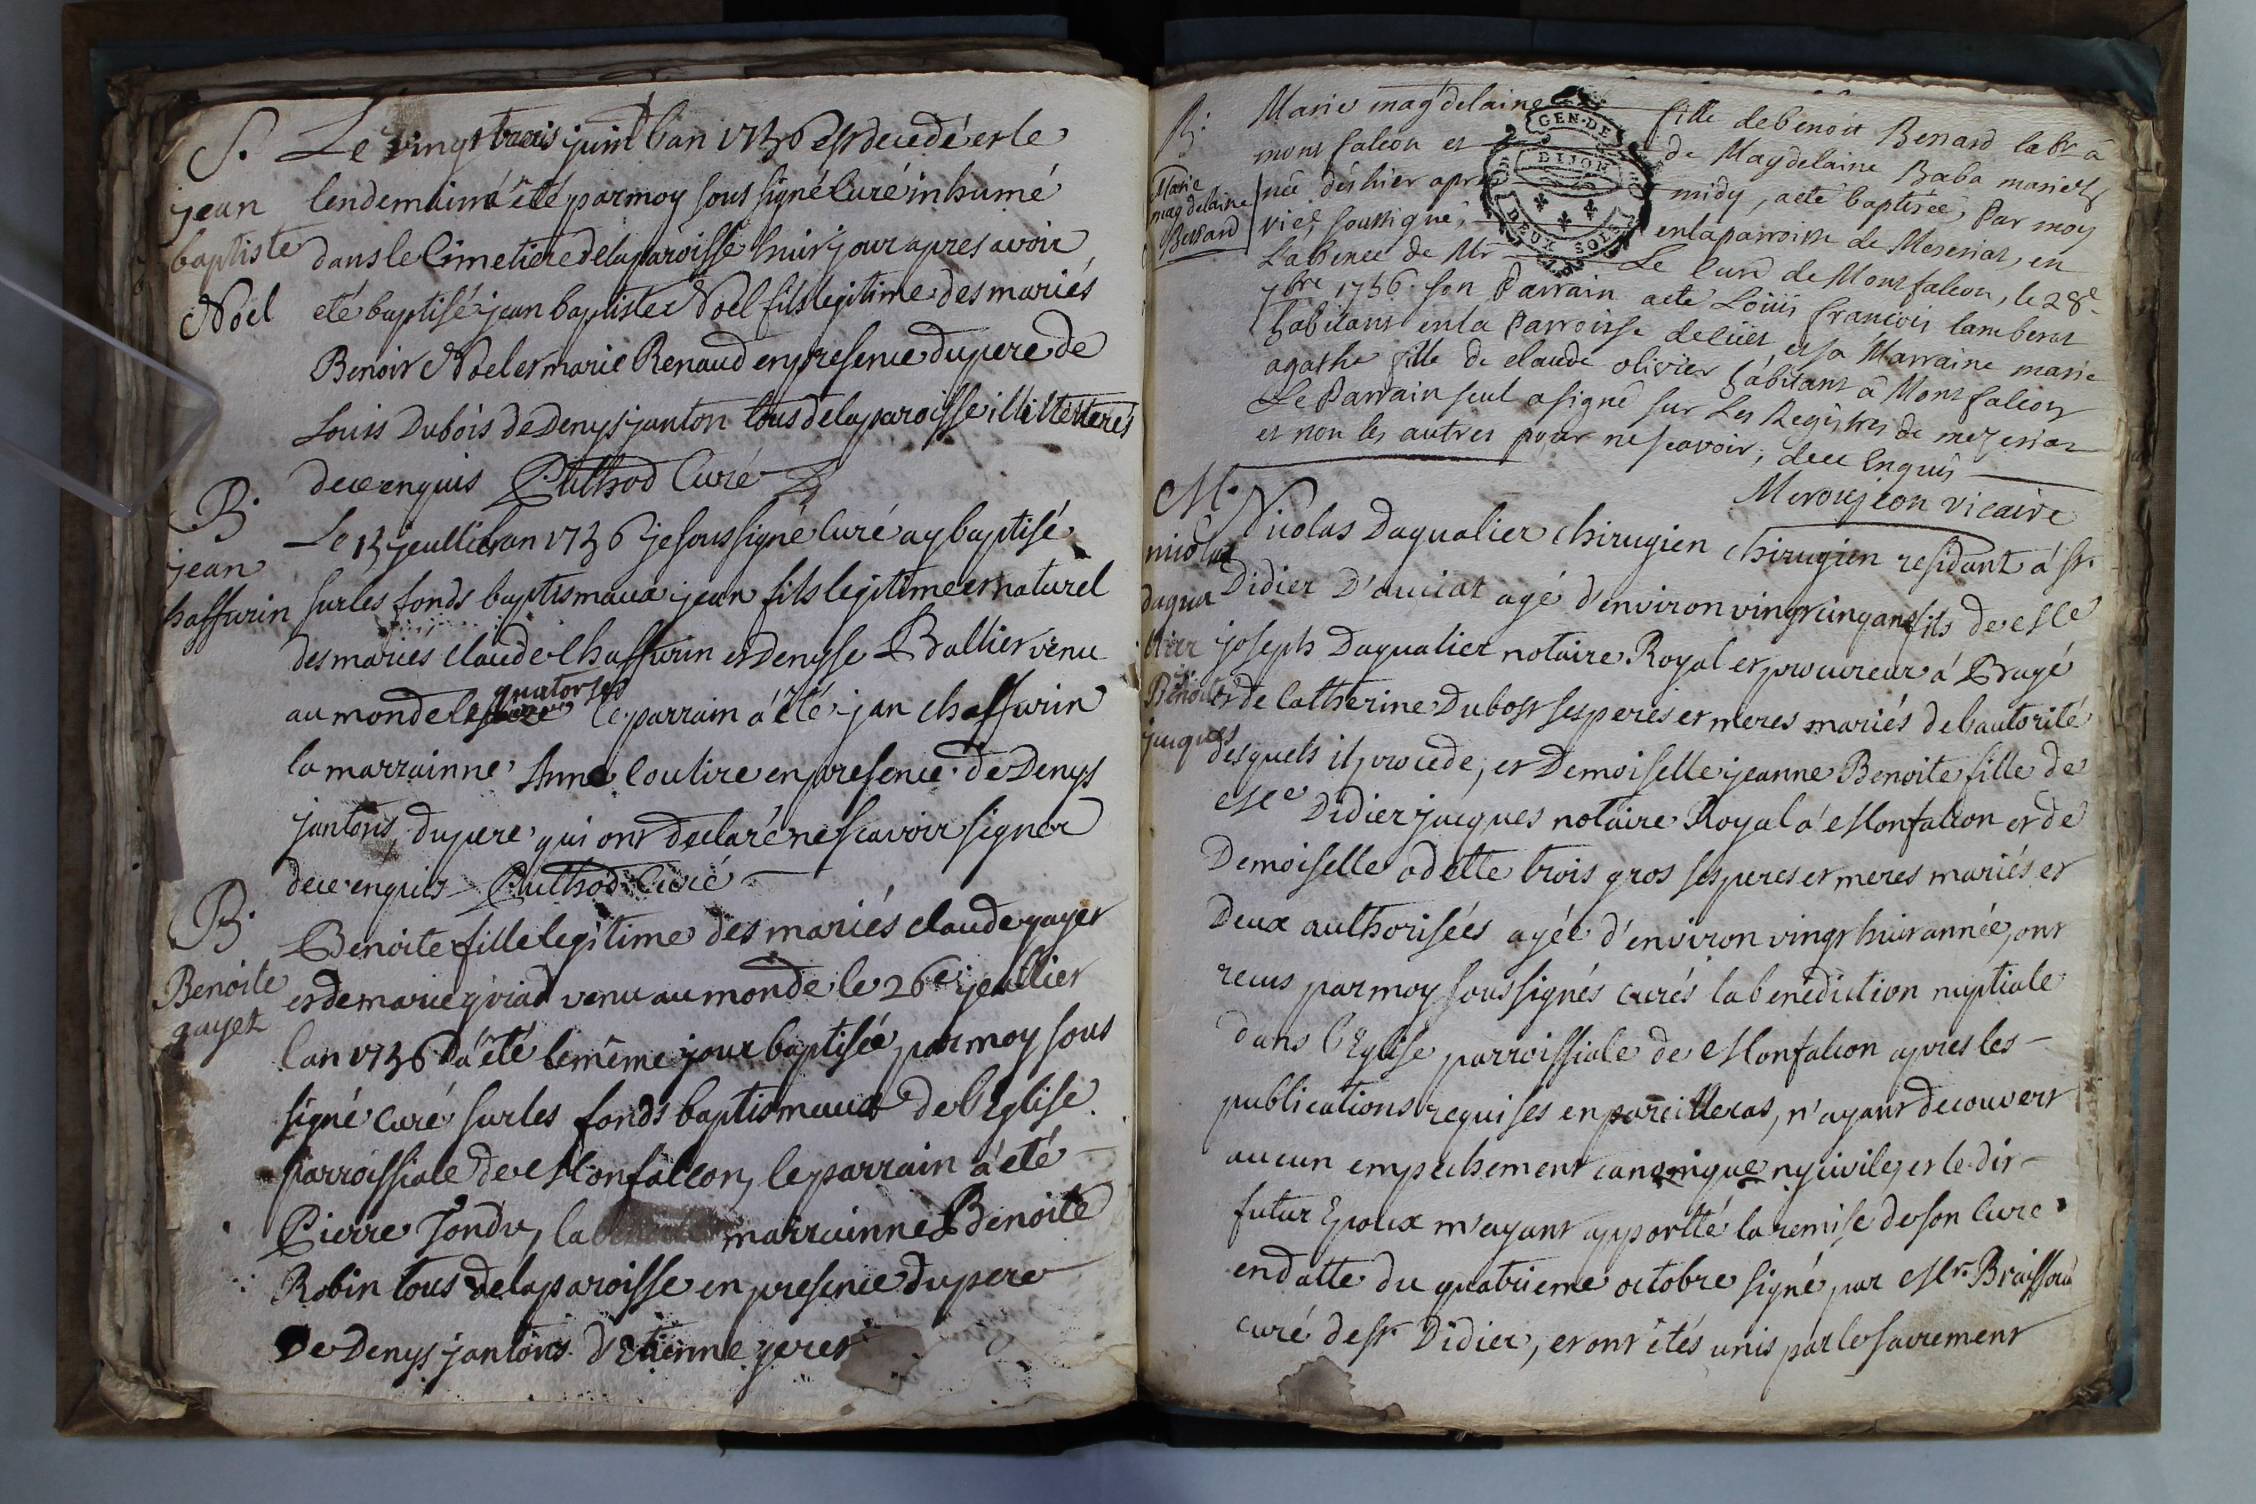 S.
jean
baptiste
Noël
Le vingt trois juint l'an 1736 est decedé et le
lendemain à été par moy sous signé Curé inhumé
dans le Cimetiere de la paroisse huit jour apres avoir
eté baptisé jean baptiste Noël fils legitime des mariés
Benoit Noel et marie Renaud en presence du pere de
Louis Dubois de Denys janton tous de la paroisse illitterés
de ce enquis Puthod Curé
B.
jean
chaffurin
Le 15 jeullier l'an 1736 je sous signé Curé ay baptisé
sur les fonds baptismaux jean fils legitime et naturel
des maries claude Chaffurin et Denyse Ballier venu
au monde le quatorse le parrain a été jan chaffurin
la marrainne Anne Coutire en presence de Denys
jantons, du pere qui ont declaré ne scavoir signer
de ce enquis Puthod Curé
B.
Benoite
gayet
Benoite fille legitime des mariés claude gayet
et de marie gviad venu au monde le 26e jeullier
l'an 1736 à été le même jour baptisée par moy sous
signé Curé sur les fonds baptismaux de l'Eglise
parroissiale de Monfalcon, le parrain à eté
Pierre Tondu, la marrainne Benoite
Robin tous de la paroisse en presence du pere
de Denys jantons d'Etienne yeret
B.
Marie
magdelaine
Bernard
Marie magdelaine fille de benoit Bernard labr à
mont falcon et de Magdelaine Baba mariez
née dèshier après midy, a eté baptisée, Par moy
vice soussigné, en la parroisse de Meseriat, en
L'absence de Mr Le Curé de Montfalcon, le 28e
7bre 1736. son Parrain a eté Loüis francois lamberet
habitant en la Parroisse de luët et sa Marraine marie
agathe fille de claude olivier habitant à Montfalcon
Le Parrain seul a signé sur Les Registres de mezeriat
et non les autres pour ne scavoir, de ce Enquis
GEN. DE
DIJON
DEUX SOLS
Morousieon vicaire
M.
nicolas
daqua
llier
Benoite
jacques
Nicolas Daquallier Chirugien Chirugien residant à St.
Didier D'auciat agé d'environ vingt cinq ans fils de Me
joseph Daquallier notaire Royal et procureur à Bragé
et de Catherine Dubost ses peres et meres mariés de l'autorité
desquels il procede, et Demoiselle jeanne Benoite fille de
Me Didier jacques notaire Royal à Monfalcon et de
Demoiselle odette trois gros ses peres et meres mariés et
Deux authorisées agée d'environ vingt huit année, ont
recus par moy sous signés curés la benediction nuptiale
dans l'Eglise parroissiale de Monfalcon apres les
publications requises en pareille cas, n'ayant decouvert
aucun empechement canonique ny civile, et le dit
futur Epoux m'ayant apportté la remise de son Curé
en datte du quatrieme octobre signé par Mr. Braissoud
curé de St. Didier, et ont étés unis par le sacrement